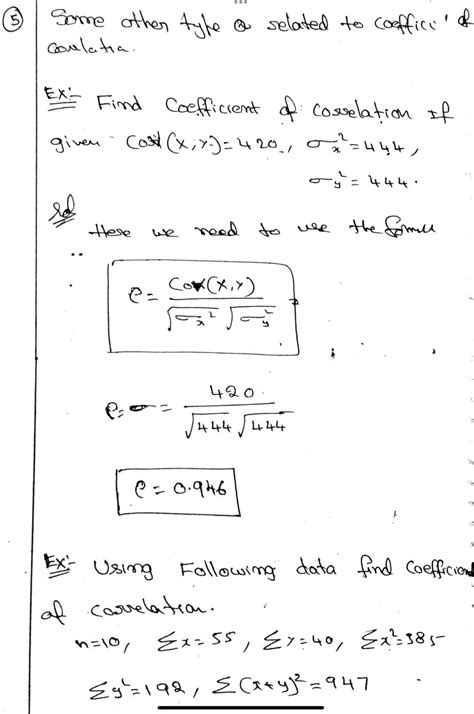 ⑤ Some other type Q related to coeffici' of
correlation.
Ex:- Find Coefficient of correlation If
given Cov(X,Y)=420, σx²=444,
σy²=444.
Sol
Here we need to use the formula
∴ ρ = Cov(X,Y) / √σx² √σy²
ρ=σ= 420 / √444 √444
ρ = 0.946
Ex:- Using Following data find coefficient
of correlation.
n=10, Σx=55, Σy=40, Σx²=385
Σy²=192, Σ(x+y)²=947